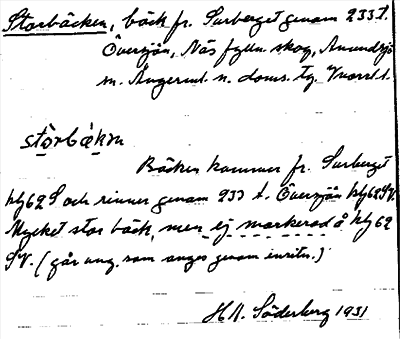 Storbäcken, bäck fr. Surberget genom 233 t.
Översjön, Näs fjälln. skog, Anundsjö
sn. Ångerml. n. doms. tg. Vnorrl. l.
stòrbækɷn
Bäcken kommer fr. Surberget
blj 62 S och rinner genom 233 t. Översjön blj 62 SV.
Mycket stor bäck, men ej markerad å blj 62
SV. (går ung. som anges genom inritn.)
H. N. Söderberg 1931